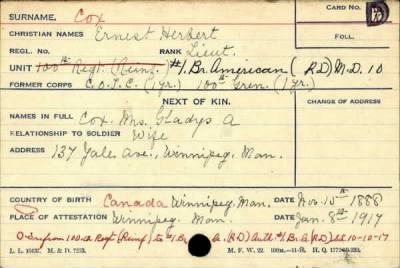 SURNAME. Cox CARD NO.
CHRISTIAN NAMES Ernest Herbert FOLL.
REGL. NO. RANK Lieut.
UNIT 100th Regt. (Reinf.) #1, Br. American (RD) M.D. 10
FORMER CORPS C.O.T.C. (1 yr.) 100th Gren. (1 yr.)
NEXT OF KIN. CHANGE OF ADDRESS
NAMES IN FULL Cox, Mrs. Gladys A
RELATIONSHIP TO SOLDIER Wife
ADDRESS 137 Yale Ave., Winnipeg, Man.
COUNTRY OF BIRTH Canada Winnipeg, Man. DATE Nov. 15th 1888
PLACE OF ATTESTATION Winnipeg, Man. DATE Jan. 8th 1917
from 100th Regt (Reinf) to #1 Br. (RD) Auth. #1 Br. A (RD) 10-10-17
M. & D. M. F. W. 22